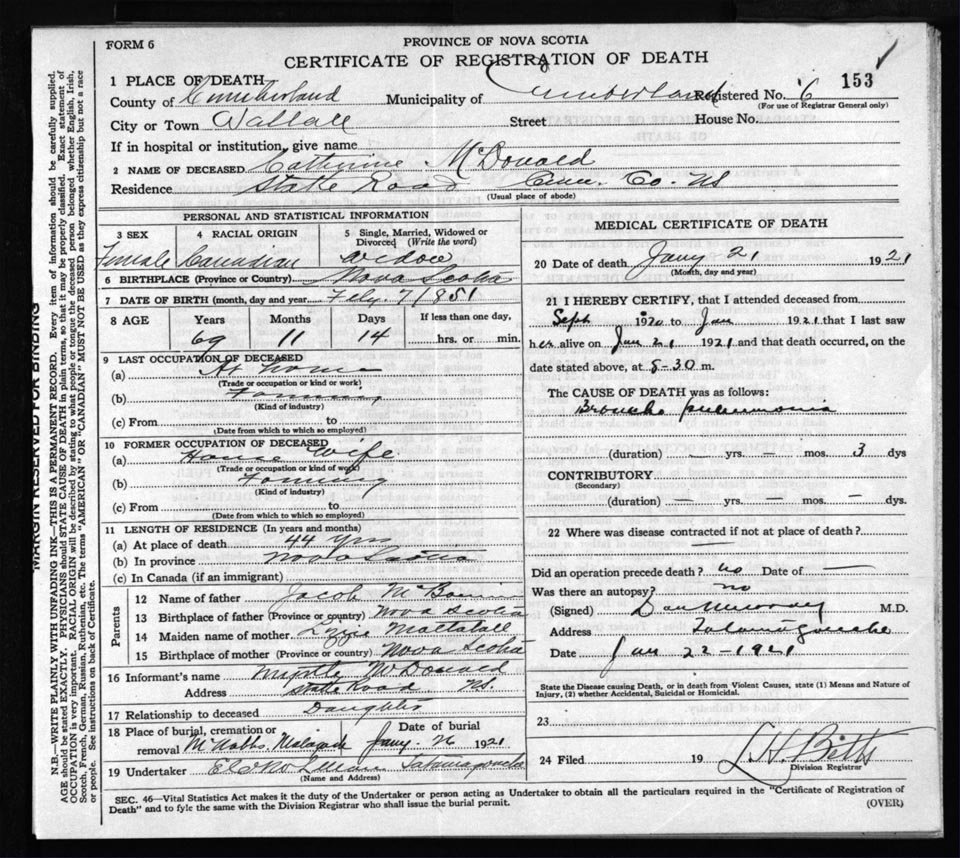 FORM 6
PROVINCE OF NOVA SCOTIA
CERTIFICATE OF REGISTRATION OF DEATH
153
1 PLACE OF DEATH
County of Cumberland Municipality of Cumberland Registered No. 6
(For use of Registrar General only)
City or Town Wallace Street House No.
If in hospital or institution, give name
2 NAME OF DECEASED Catherine McDonald
Residence State Road Cum. Co. NS
(Usual place of abode)
PERSONAL AND STATISTICAL INFORMATION
3 SEX 4 RACIAL ORIGIN 5 Single, Married, Widowed or Divorced (Write the word)
Female Canadian Widow
6 BIRTHPLACE (Province or Country) Nova Scotia
7 DATE OF BIRTH (month, day and year) 7 1851
8 AGE Years Months Days If less than one day,
69 11 14 hrs. or min.
9 LAST OCCUPATION OF DECEASED
(a) At home
(Trade or occupation or kind or work)
(b) Farming
(Kind of industry)
(c) From to
(Date from which to which so employed)
10 FORMER OCCUPATION OF DECEASED
(a) House Wife
(Trade or occupation or kind of work)
(b) Farming
(Kind of industry)
(c) From to
(Date from which to which so employed)
11 LENGTH OF RESIDENCE (In years and months)
(a) At place of death 44 yrs
(b) In province Nova Scotia
(c) In Canada (if an immigrant)
Parents
12 Name of father Jacob
13 Birthplace of father (Province or country) Nova Scotia
14 Maiden name of mother Mattatall
15 Birthplace of mother (Province or country) Nova Scotia
16 Informant's name Myrtle McDonald
Address State Road NS.
17 Relationship to deceased Daughter
18 Place of burial, cremation or removal Date of burial
Jany. 26 1921
19 Undertaker Tatamagouche
(Name and Address)
MEDICAL CERTIFICATE OF DEATH
20 Date of death Jany 21 1921
(Month, day and year)
21 I HEREBY CERTIFY, that I attended deceased from
Sept 1920 to Jan 1921 that I last saw
her alive on Jan 21 1921 and that death occurred, on the
date stated above, at 5-30 m.
The CAUSE OF DEATH was as follows:
Broncho pneumonia
(duration) — yrs. — mos. 3 dys
CONTRIBUTORY
(Secondary)
(duration) — yrs. — mos. — dys.
22 Where was disease contracted if not at place of death? —
Did an operation precede death? no Date of —
Was there an autopsy? no
(Signed) Dan Murray M.D.
Address Tatamagouche
Date Jan 22-1921
State the Disease causing Death, or in death from Violent Causes, state (1) Means and Nature of
Injury, (2) whether Accidental, Suicidal or Homicidal.
23
24 Filed 19 Betts
Division Registrar
SEC. 46—Vital Statistics Act makes it the duty of the Undertaker or person acting as Undertaker to obtain all the particulars required in the "Certificate of Registration of
Death" and to fyle the same with the Division Registrar who shall issue the burial permit.
(OVER)
MARGIN RESERVED FOR BINDING
N.B.—WRITE PLAINLY WITH UNFADING INK—THIS IS A PERMANENT RECORD. Every item of information should be carefully supplied.
AGE should be stated EXACTLY. PHYSICIANS should STATE CAUSE OF DEATH in plain terms, so that it may be properly classified. Exact statement of
OCCUPATION is very important. RACIAL ORIGIN will be described by stating to what people or tongue the deceased person belonged whether English, Irish,
Scotch, French, German, Russian, Ruthenian, etc. The terms "AMERICAN" OR "CANADIAN" MUST NOT BE USED as they express citizenship but not a race
or people. See instructions on back of Certificate.